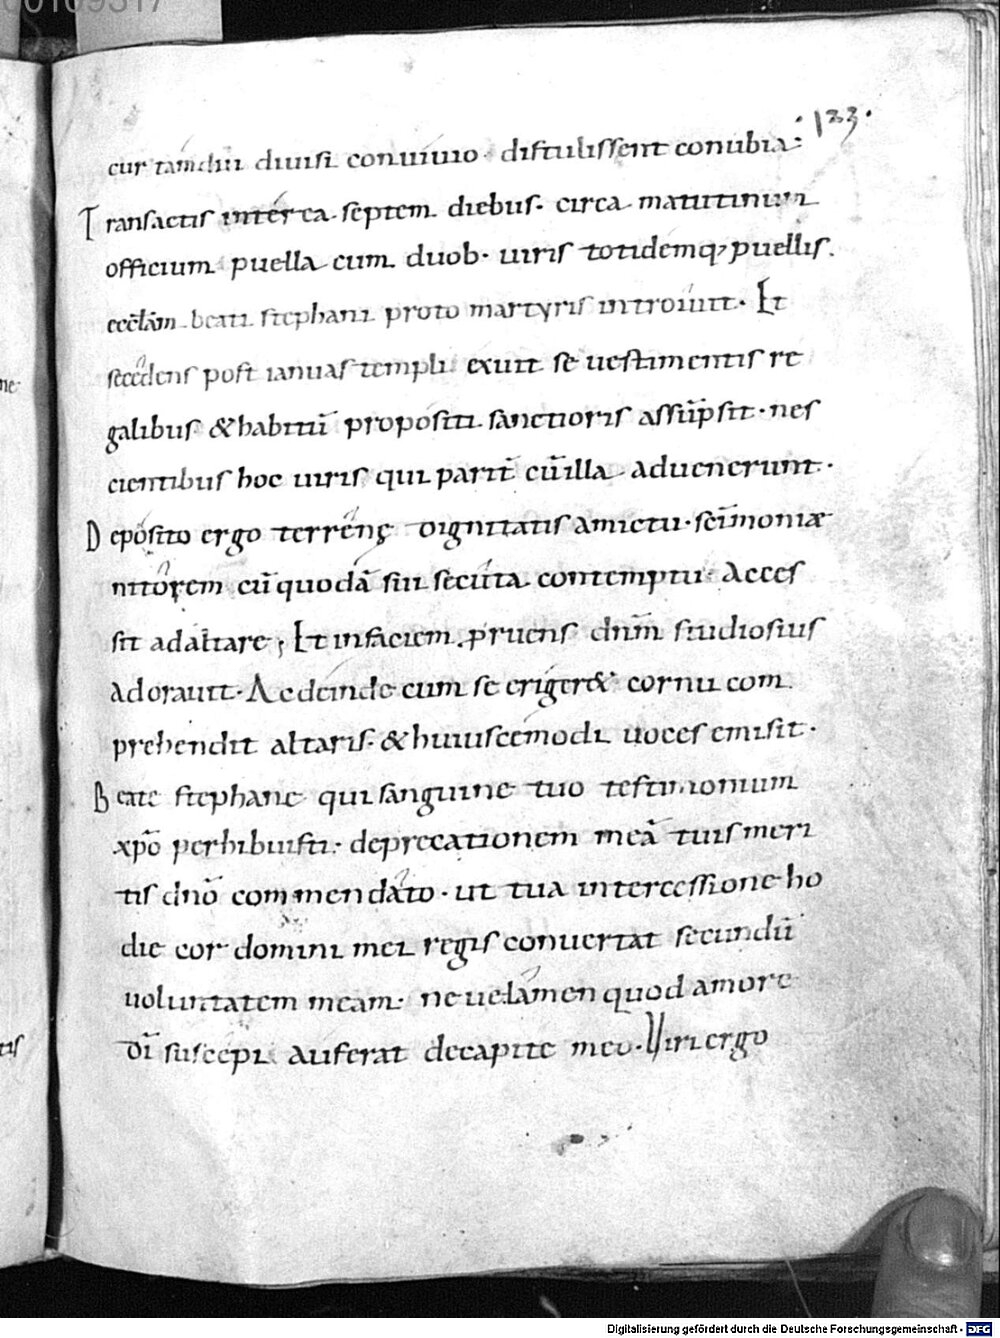 00109317
123.
cur tamdiu diuisi conuiuio· distulissent conubia:
Transactis interea septem diebus· circa matutinum
officium puella cum duob· uiris totidemq; puellis.
eccłam beati stephani proto martyris introiuit· Et
secedens post ianuas templi exuit se uestimentis re
galibus & habitū propositi sanctioris assūpsit· nes
cientibus hoc uiris qui parit̄ cū illa aduenerunt·
Deposito ergo terrenę dignitatis amictu· sc̄imoniæ
nitorem cū quodā sui secuta contemptu· Acces
sit ad altare; Et in faciem pruens dn̄m studiosius
adorauit· Ac deinde cum se eriger& cornu com
prehendit altaris· & huiuscemodi uoces emisit·
Beate stephane qui sanguine tuo testimonium
xp̄o perhibuisti· deprecationem meā tuis meri
tis dn̄o commendato· ut tua intercessione ho
die cor domini mei regis conuertat secundū
uoluntatem meam· ne uelamen quod amore
dī suscepi auferat de capite meo· Viri ergo
ne·
tis
Digitalisierung gefördert durch die Deutsche Forschungsgemeinschaft · DFG